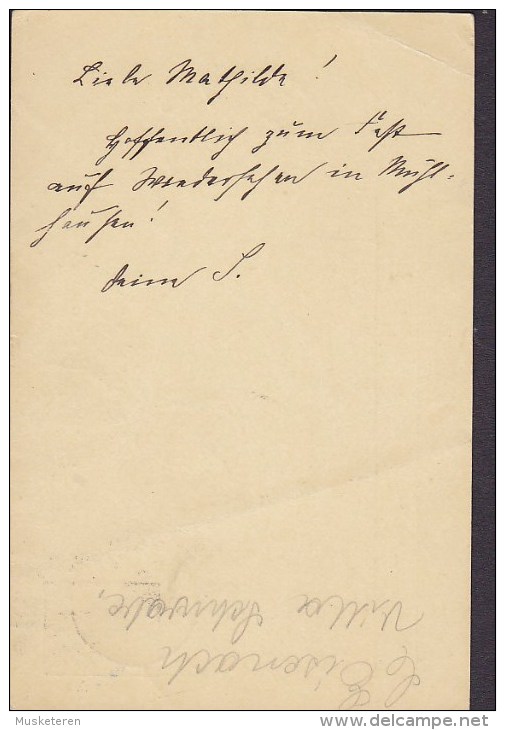 Liebe Mathilde!
Hoffentlich zum Fest
auf Wiedersehen in Mühl-
hausen!
Deine S.
Villa Schwabe,
Eisenach
Musketeren
delcampe.net